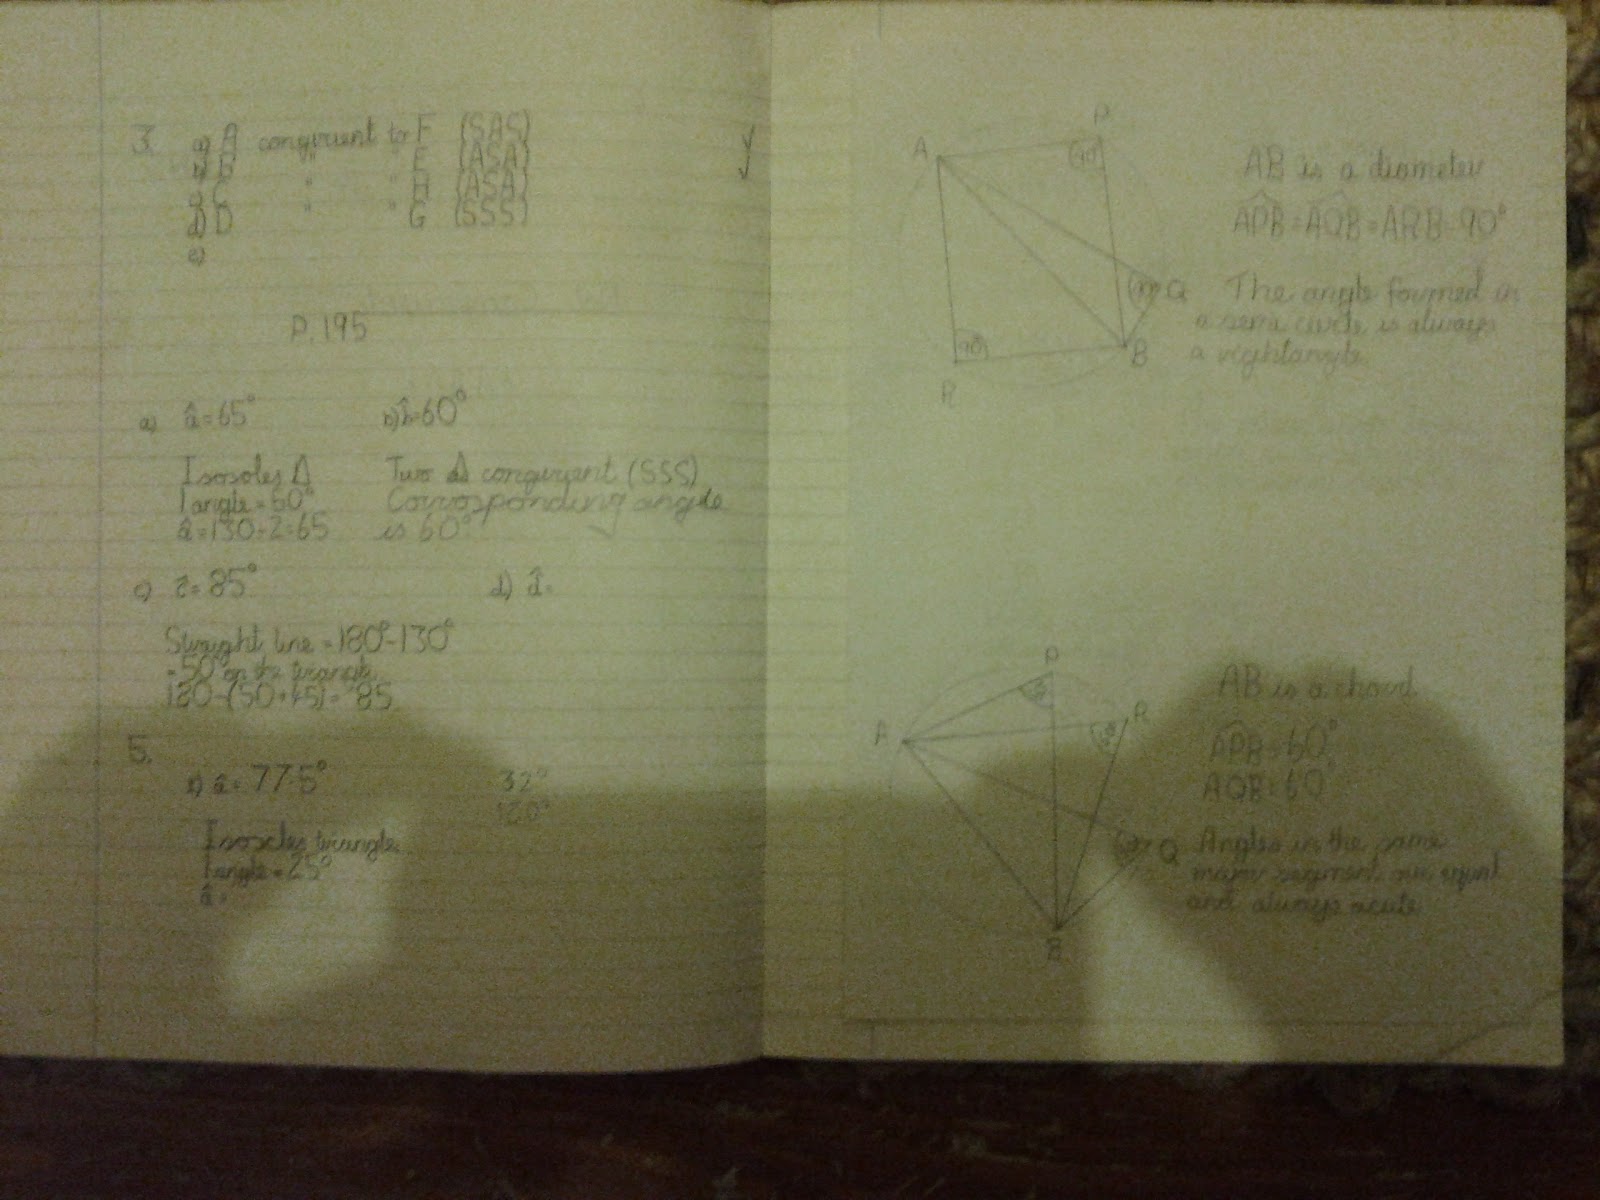 3. a) A congruent to F (SAS)
b) B " " E (ASA)
c) C " " H (ASA)
d) D " " G (SSS)
e)
P.195
a) â = 65° b) b̂ = 60°
Isosoles Δ Two Δ congruent (SSS)
1 angle = 50° Corrosponding angle
â = 130 ÷ 2 = 65 is 60°.
c) ĉ = 85° d) d̂ =
Straight line = 180° - 130°
= 50° on the triangle
180 - (50 + 45) = 85
5.
1) â = 77.5° 32°
180°
Isosoles triangle
1 angle = 25°
â =
A
P
90°
Q
90
B
R
AB is a diameter
APB = AQB = ARB = 90°
The angle formed in
a semi circle is always
a rightangle
P
A
R
60
Q
B
AB is a chord
APB = 60°
AQB = 60°
Angles in the same
major segment are equal
and always acute